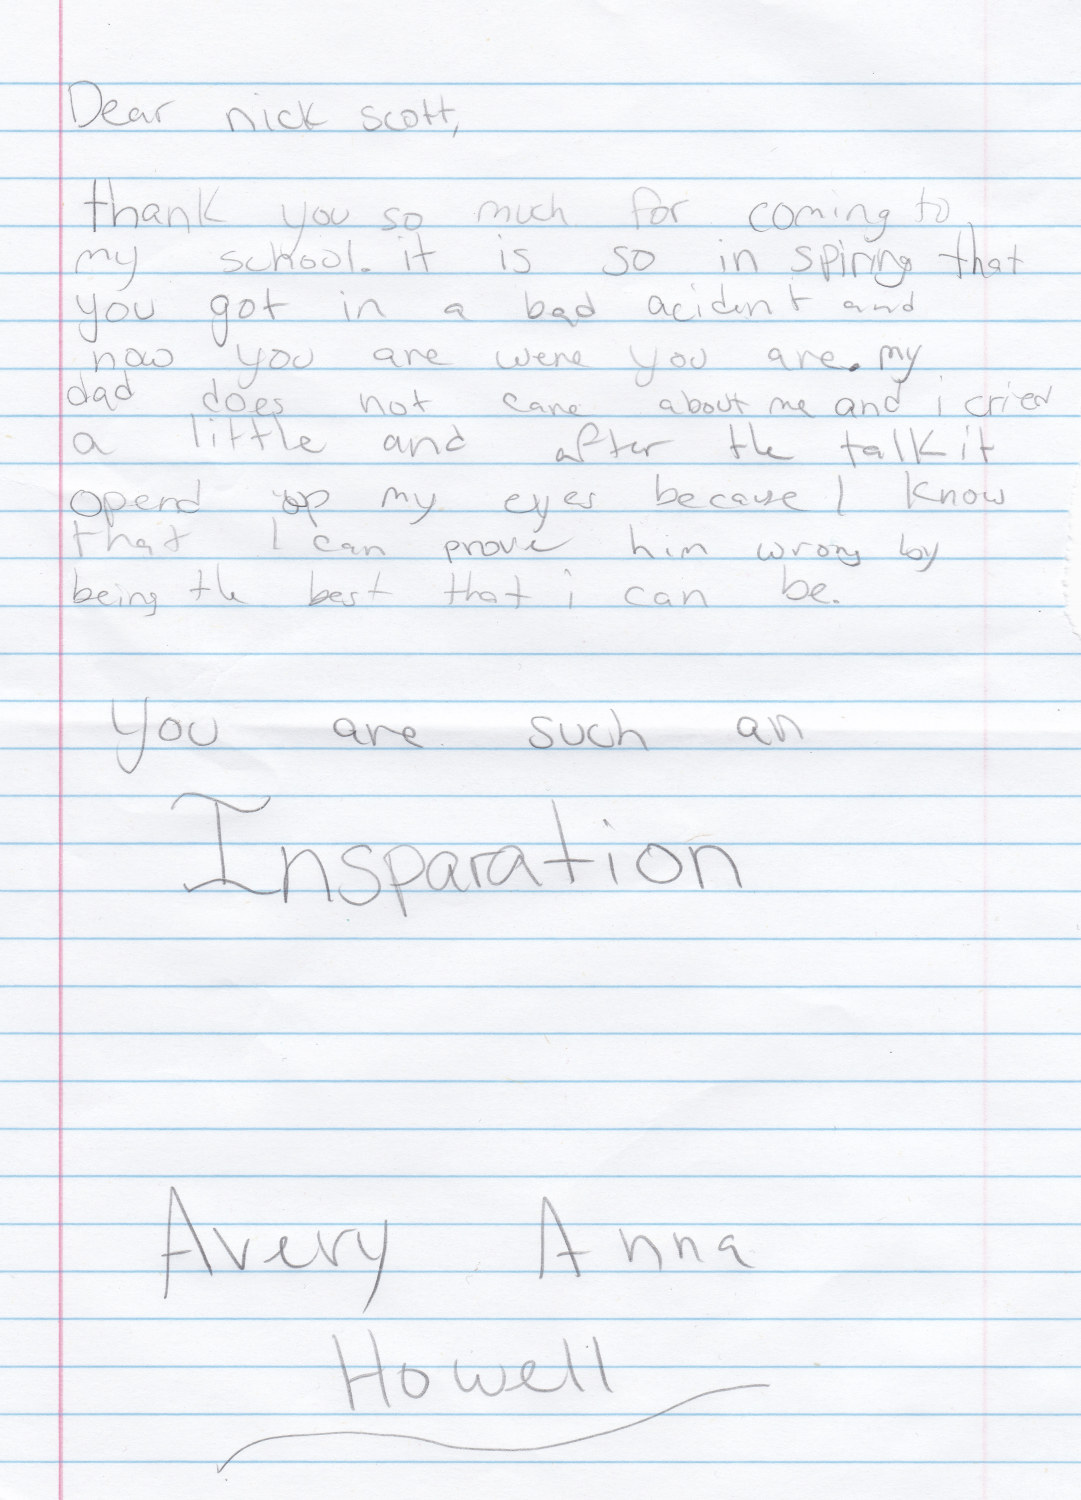 Dear nick scott,
thank you so much for coming to
my school. it is so in spiring that
you got in a bad acident and
now you are were you are. my
dad does not care about me and i cried
a little and after the talk it
opend up my eyes because I know
that I can prove him wrong by
being the best that i can be.
You are such an
Insparation
Avery Anna
Howell